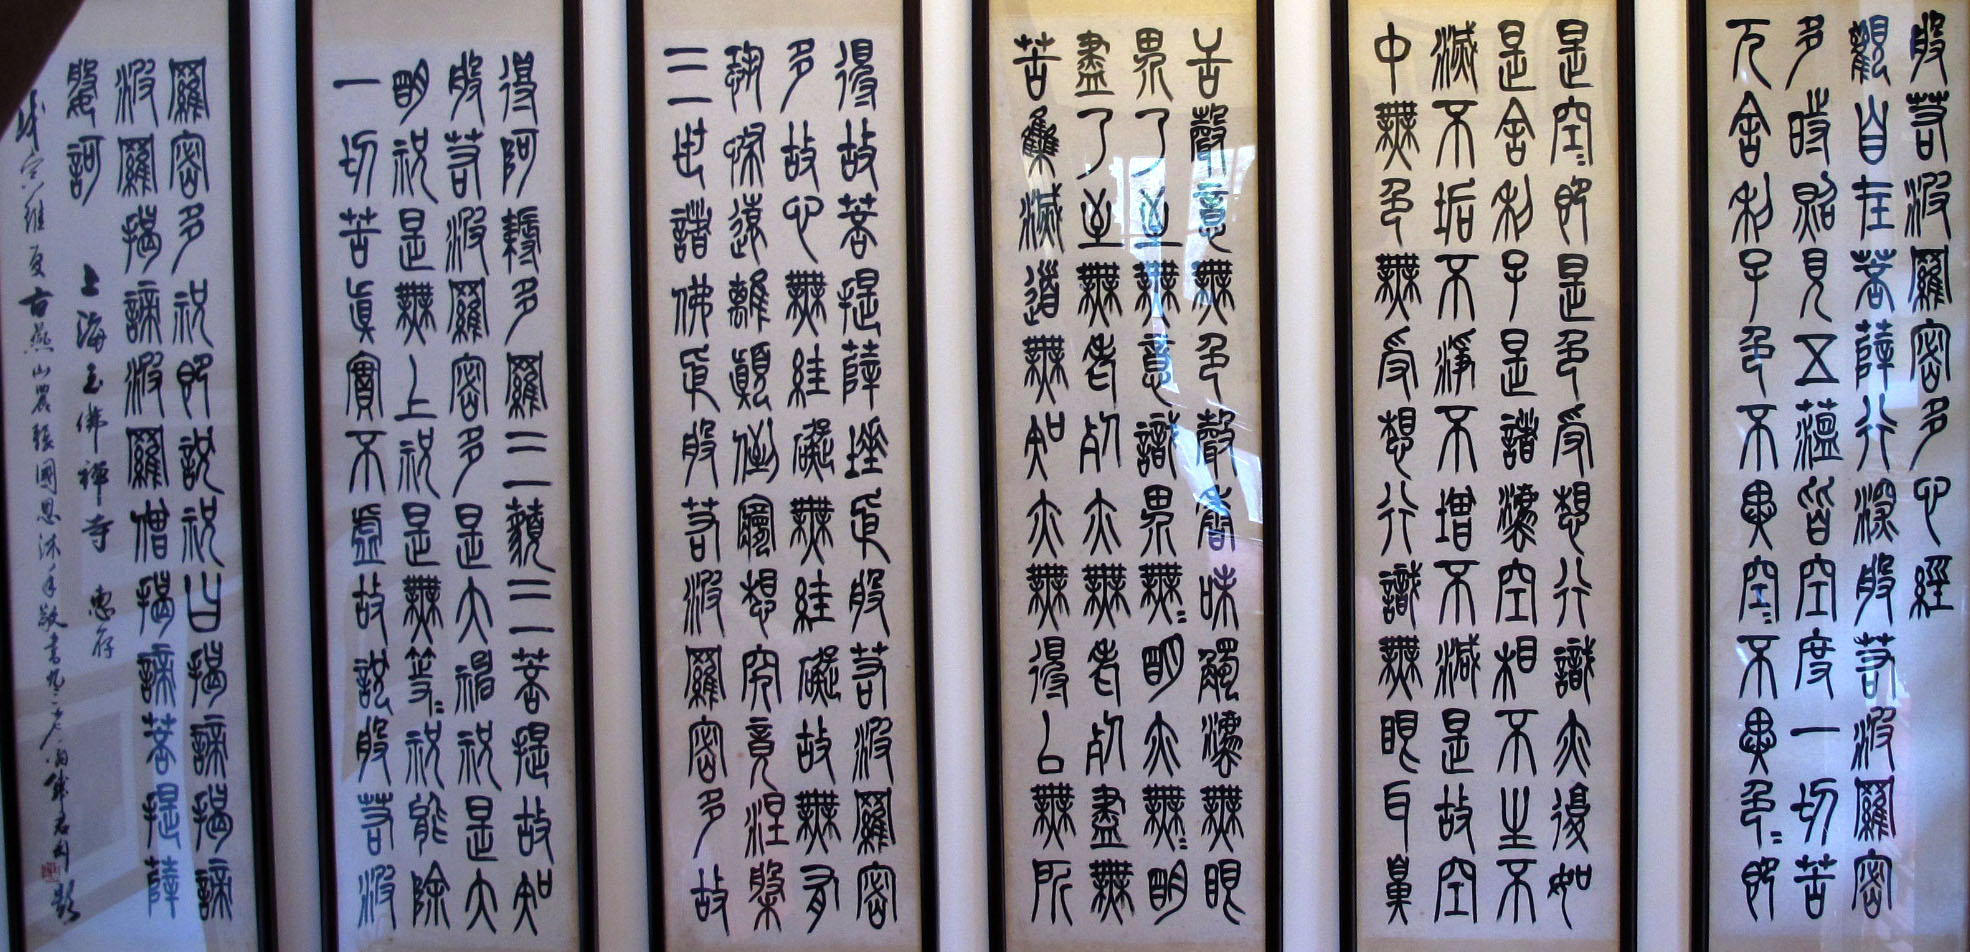 般若波羅密多心經
觀自在菩薩行深般若波羅密
多時照見五蘊皆空度一切苦
厄舍利子色不異空〻不異色〻即
是空〻即是色受想行識亦復如
是舍利子是諸法空相不生不
滅不垢不淨不增不減是故空
中無色無受想行識無眼耳鼻
舌聲意無色聲香味觸法無眼
界乃至無意識界無〻明亦無〻明
盡乃至無老死亦無老死盡無
苦集滅道無知亦無得以無所
得故菩提薩埵依般若波羅密
多故心無絓礙無絓礙故無有
恐怖遠離顛倒夢想究竟涅槃
三世諸佛依般若波羅密多故
得阿耨多羅三藐三菩提故知
般若波羅密多是大神祝是大
明祝是無上祝是無等〻祝能除
一切苦真實不虛故說般若波
羅密多祝即說祝曰揭諦揭諦
波羅揭諦波羅僧揭諦菩提薩
婆訶
上海玉佛禪寺 惠存
維夏古燕山農張國恩沐手敬書